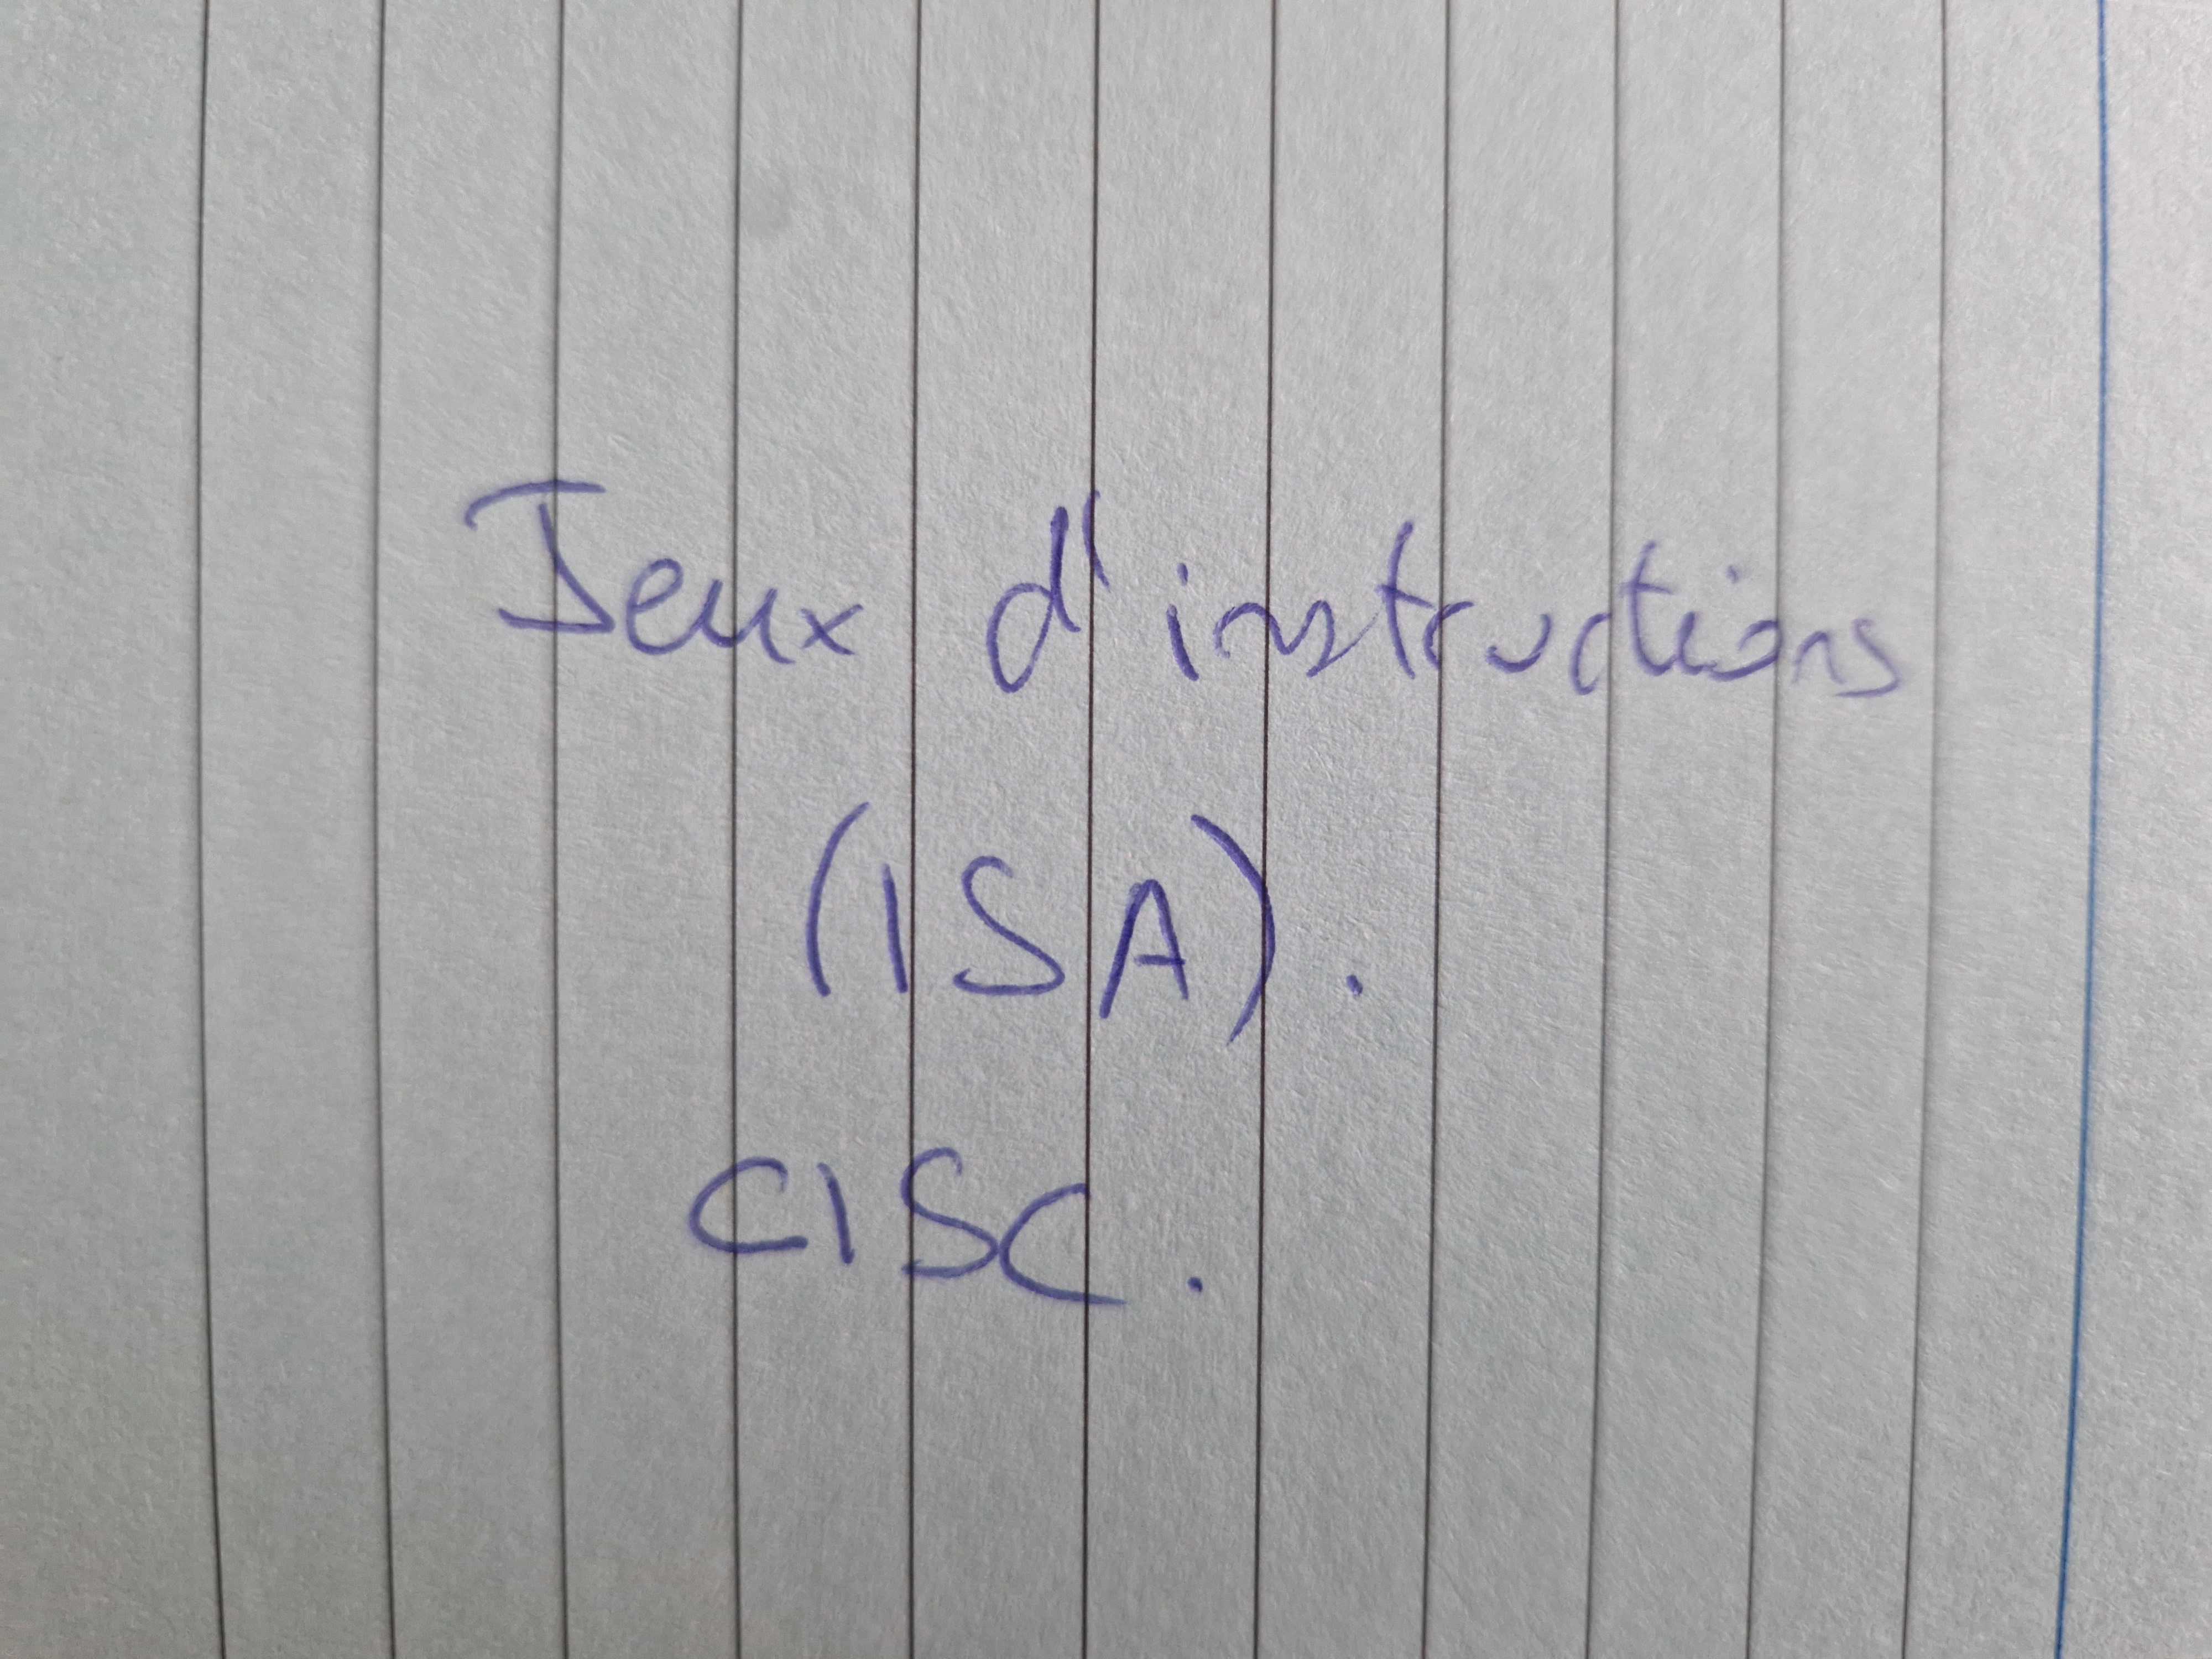 Jeux d'instructions
(ISA).
CISC.